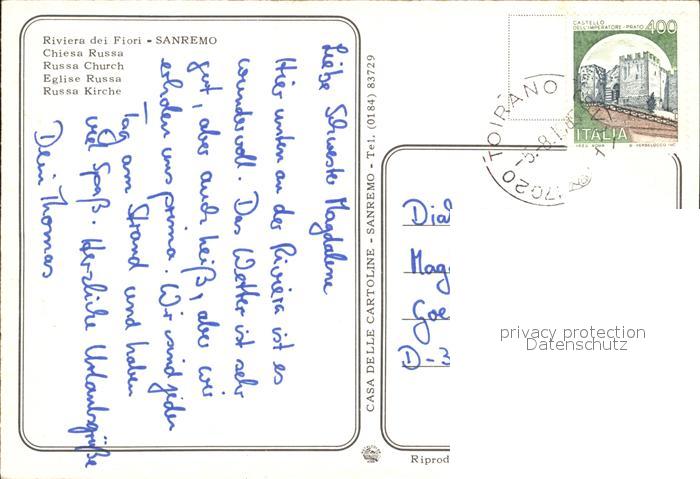 Riviera dei Fiori - SANREMO
Chiesa Russa
Russa Church
Eglise Russa
Russa Kirche
Liebe Schwester Magdalene
Hier unten an der Riviera ist es
wundervoll. Das Wetter ist sehr
gut, aber auch heiß, aber wir
erholen uns prima. Wir sind jeden
Tag am Strand und haben
viel Spaß. Herzliche Urlaubsgrüße
Dein Thomas
CASA DELLE CARTOLINE - SANREMO - Tel. (0184) 83729
CASTELLO
DELL'IMPERATORE - PRATO
400
ITALIA
17020 TOIRANO
Mag
Goe
D-3
privacy protection
Datenschutz
Riprod